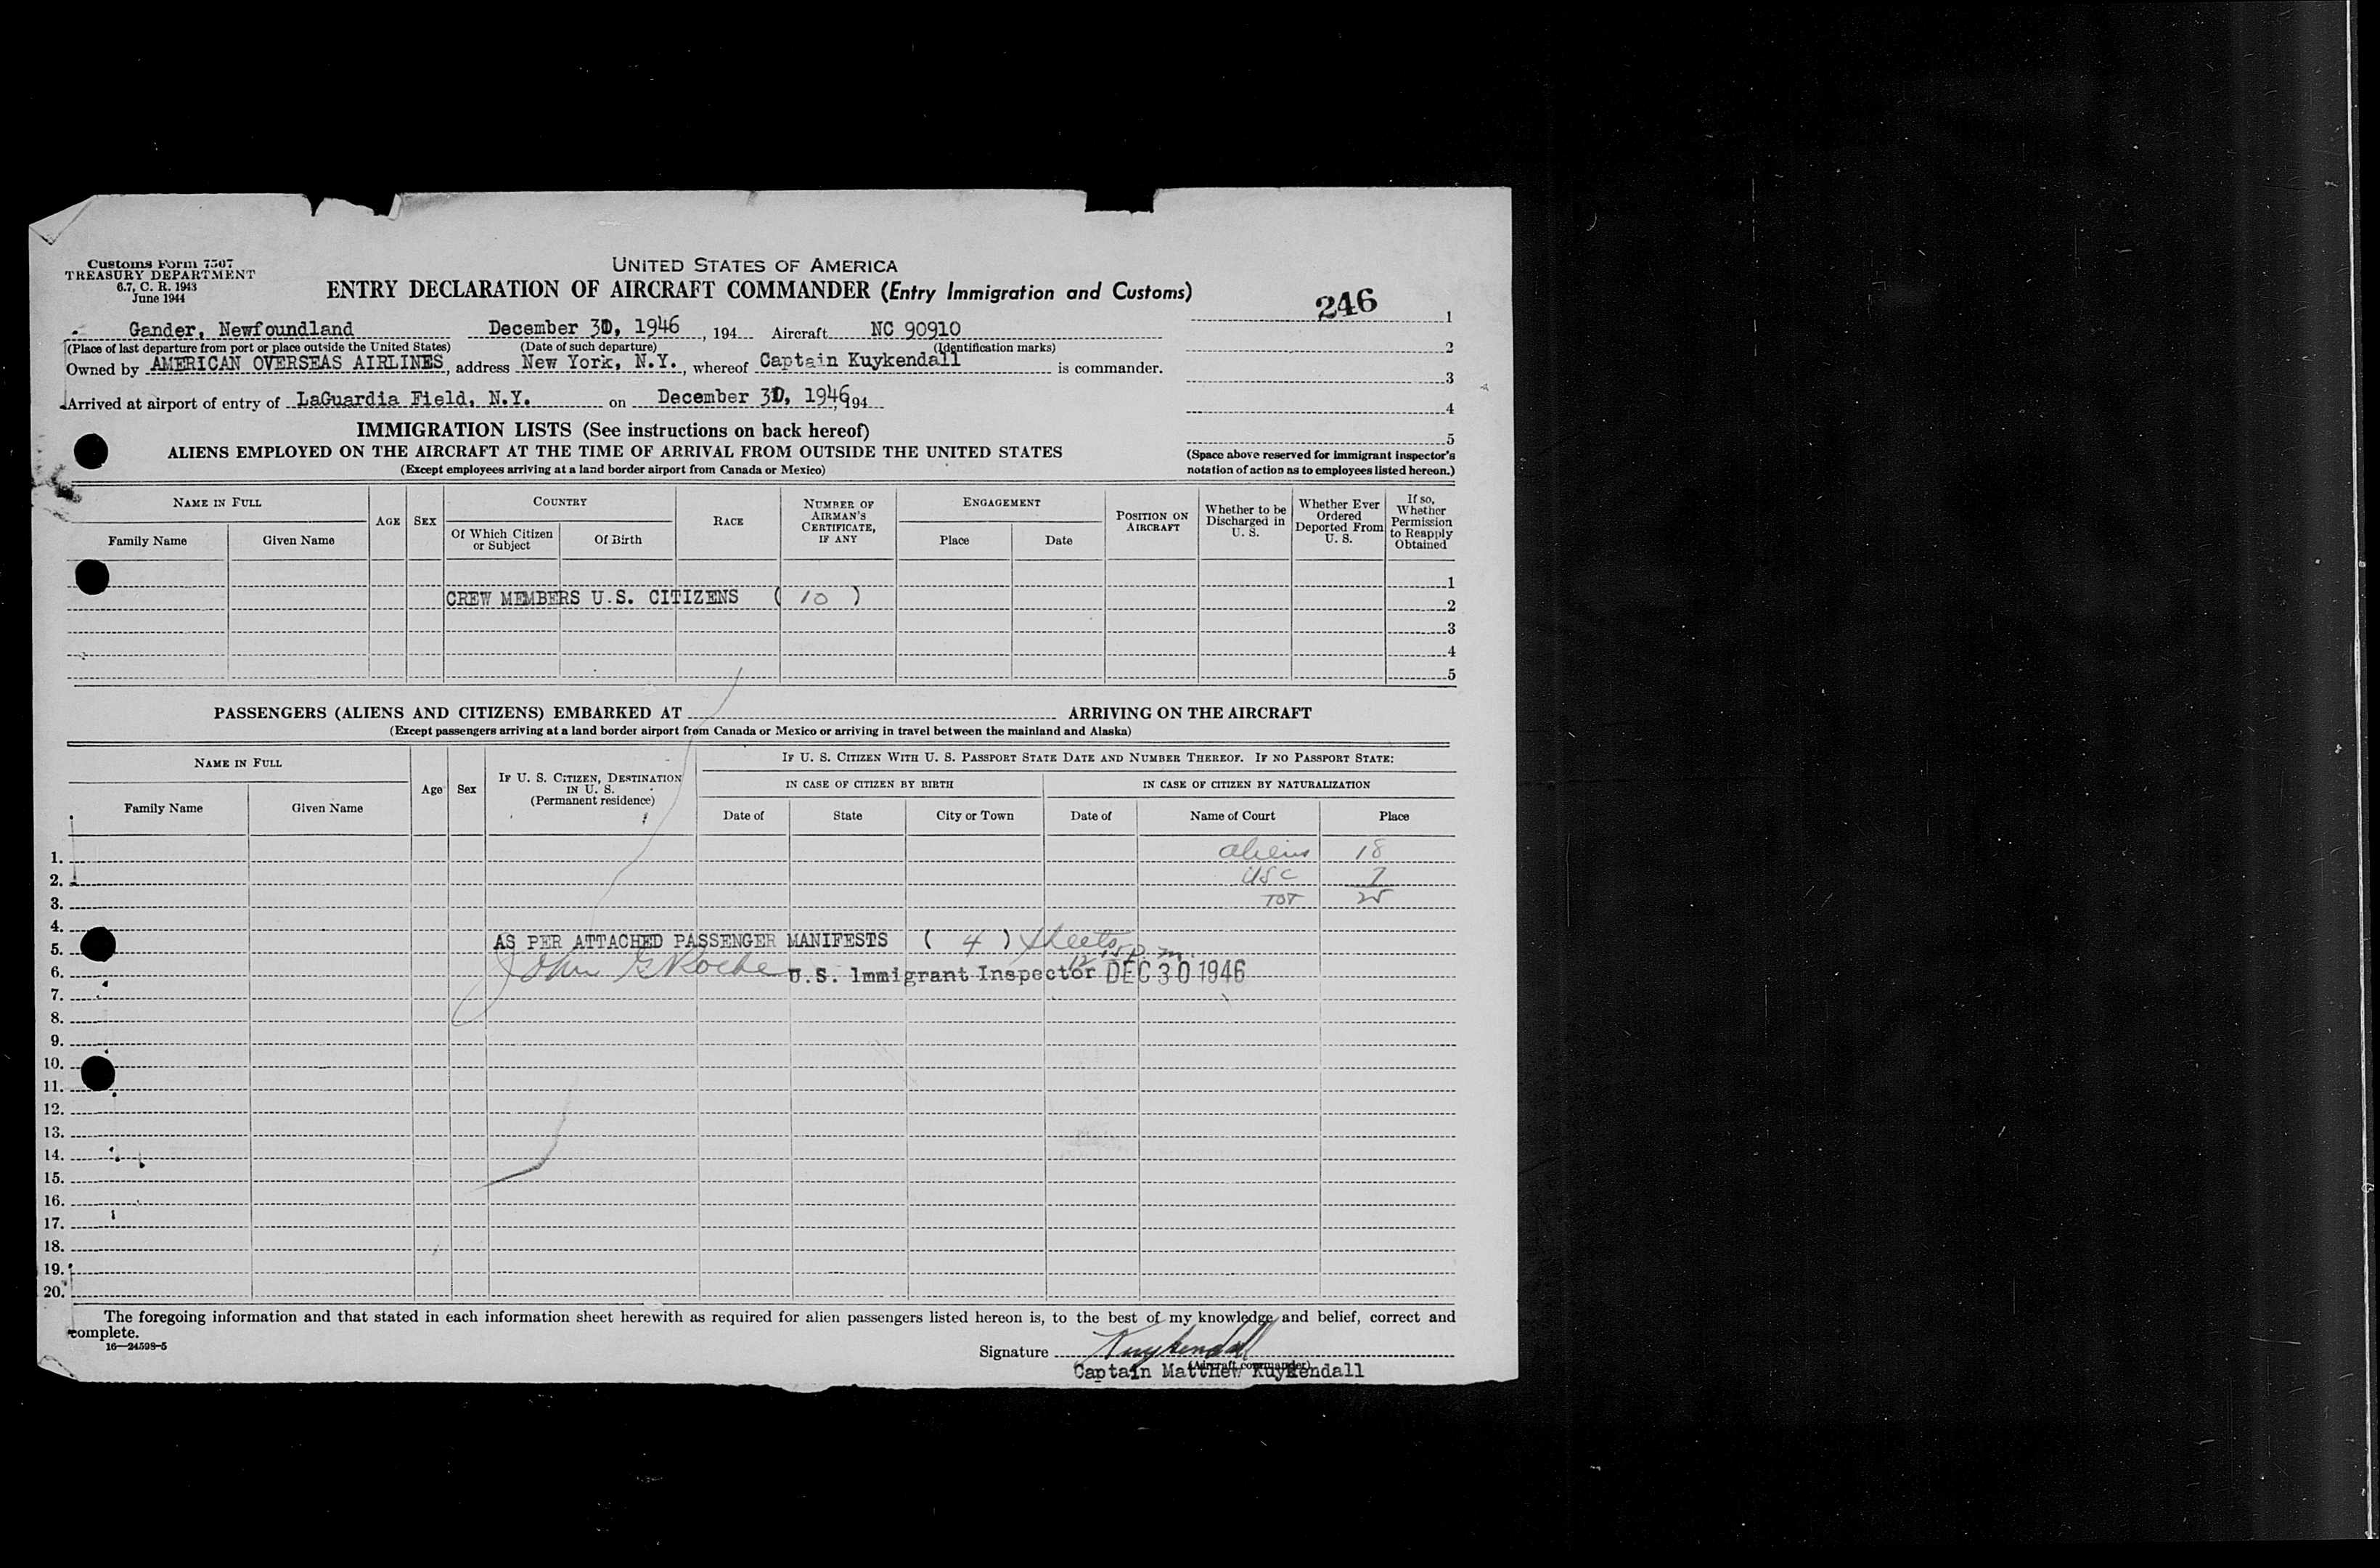 Customs Form 7507
TREASURY DEPARTMENT
6.7, C. R. 1943
June 1944
UNITED STATES OF AMERICA
ENTRY DECLARATION OF AIRCRAFT COMMANDER (Entry Immigration and Customs)
246
1
Gander, Newfoundland December 30, 1946, 194 Aircraft NC 90910
(Place of last departure from port or place outside the United States) (Date of such departure) (Identification marks)
2
Owned by AMERICAN OVERSEAS AIRLINES, address New York, N.Y., whereof Captain Kuykendall is commander.
3
Arrived at airport of entry of LaGuardia Field, N.Y. on December 30, 1946, 194
4
IMMIGRATION LISTS (See instructions on back hereof)
5
ALIENS EMPLOYED ON THE AIRCRAFT AT THE TIME OF ARRIVAL FROM OUTSIDE THE UNITED STATES
(Except employees arriving at a land border airport from Canada or Mexico)
(Space above reserved for immigrant inspector's
notation of action as to employees listed hereon.)
NAME IN FULL
Family Name Given Name
AGE SEX
COUNTRY
Of Which Citizen
or Subject
Of Birth
RACE
NUMBER OF
AIRMAN'S
CERTIFICATE,
IF ANY
ENGAGEMENT
Place Date
POSITION ON
AIRCRAFT
Whether to be
Discharged in
U. S.
Whether Ever
Ordered
Deported From
U. S.
If so,
Whether
Permission
to Reapply
Obtained
1
CREW MEMBERS U.S. CITIZENS ( 10 ) 2
3
4
5
PASSENGERS (ALIENS AND CITIZENS) EMBARKED AT ARRIVING ON THE AIRCRAFT
(Except passengers arriving at a land border airport from Canada or Mexico or arriving in travel between the mainland and Alaska)
NAME IN FULL
Family Name Given Name
Age Sex
IF U. S. CITIZEN, DESTINATION
IN U. S.
(Permanent residence)
IF U. S. CITIZEN WITH U. S. PASSPORT STATE DATE AND NUMBER THEREOF. IF NO PASSPORT STATE:
IN CASE OF CITIZEN BY BIRTH IN CASE OF CITIZEN BY NATURALIZATION
Date of State City or Town Date of Name of Court Place
1. aliens 18
2. USC 7
3. TOT 25
4.
5. AS PER ATTACHED PASSENGER MANIFESTS ( 4 ) sheets
12 15 p. m.
6. John G Roche U.S. Immigrant Inspector DEC 30 1946
7.
8.
9.
10.
11.
12.
13.
14.
15.
16.
17.
18.
19.
20.
The foregoing information and that stated in each information sheet herewith as required for alien passengers listed hereon is, to the best of my knowledge and belief, correct and
complete.
16—24598-5
Signature Kuykendall
(Aircraft commander)
Captain Matthew Kuykendall